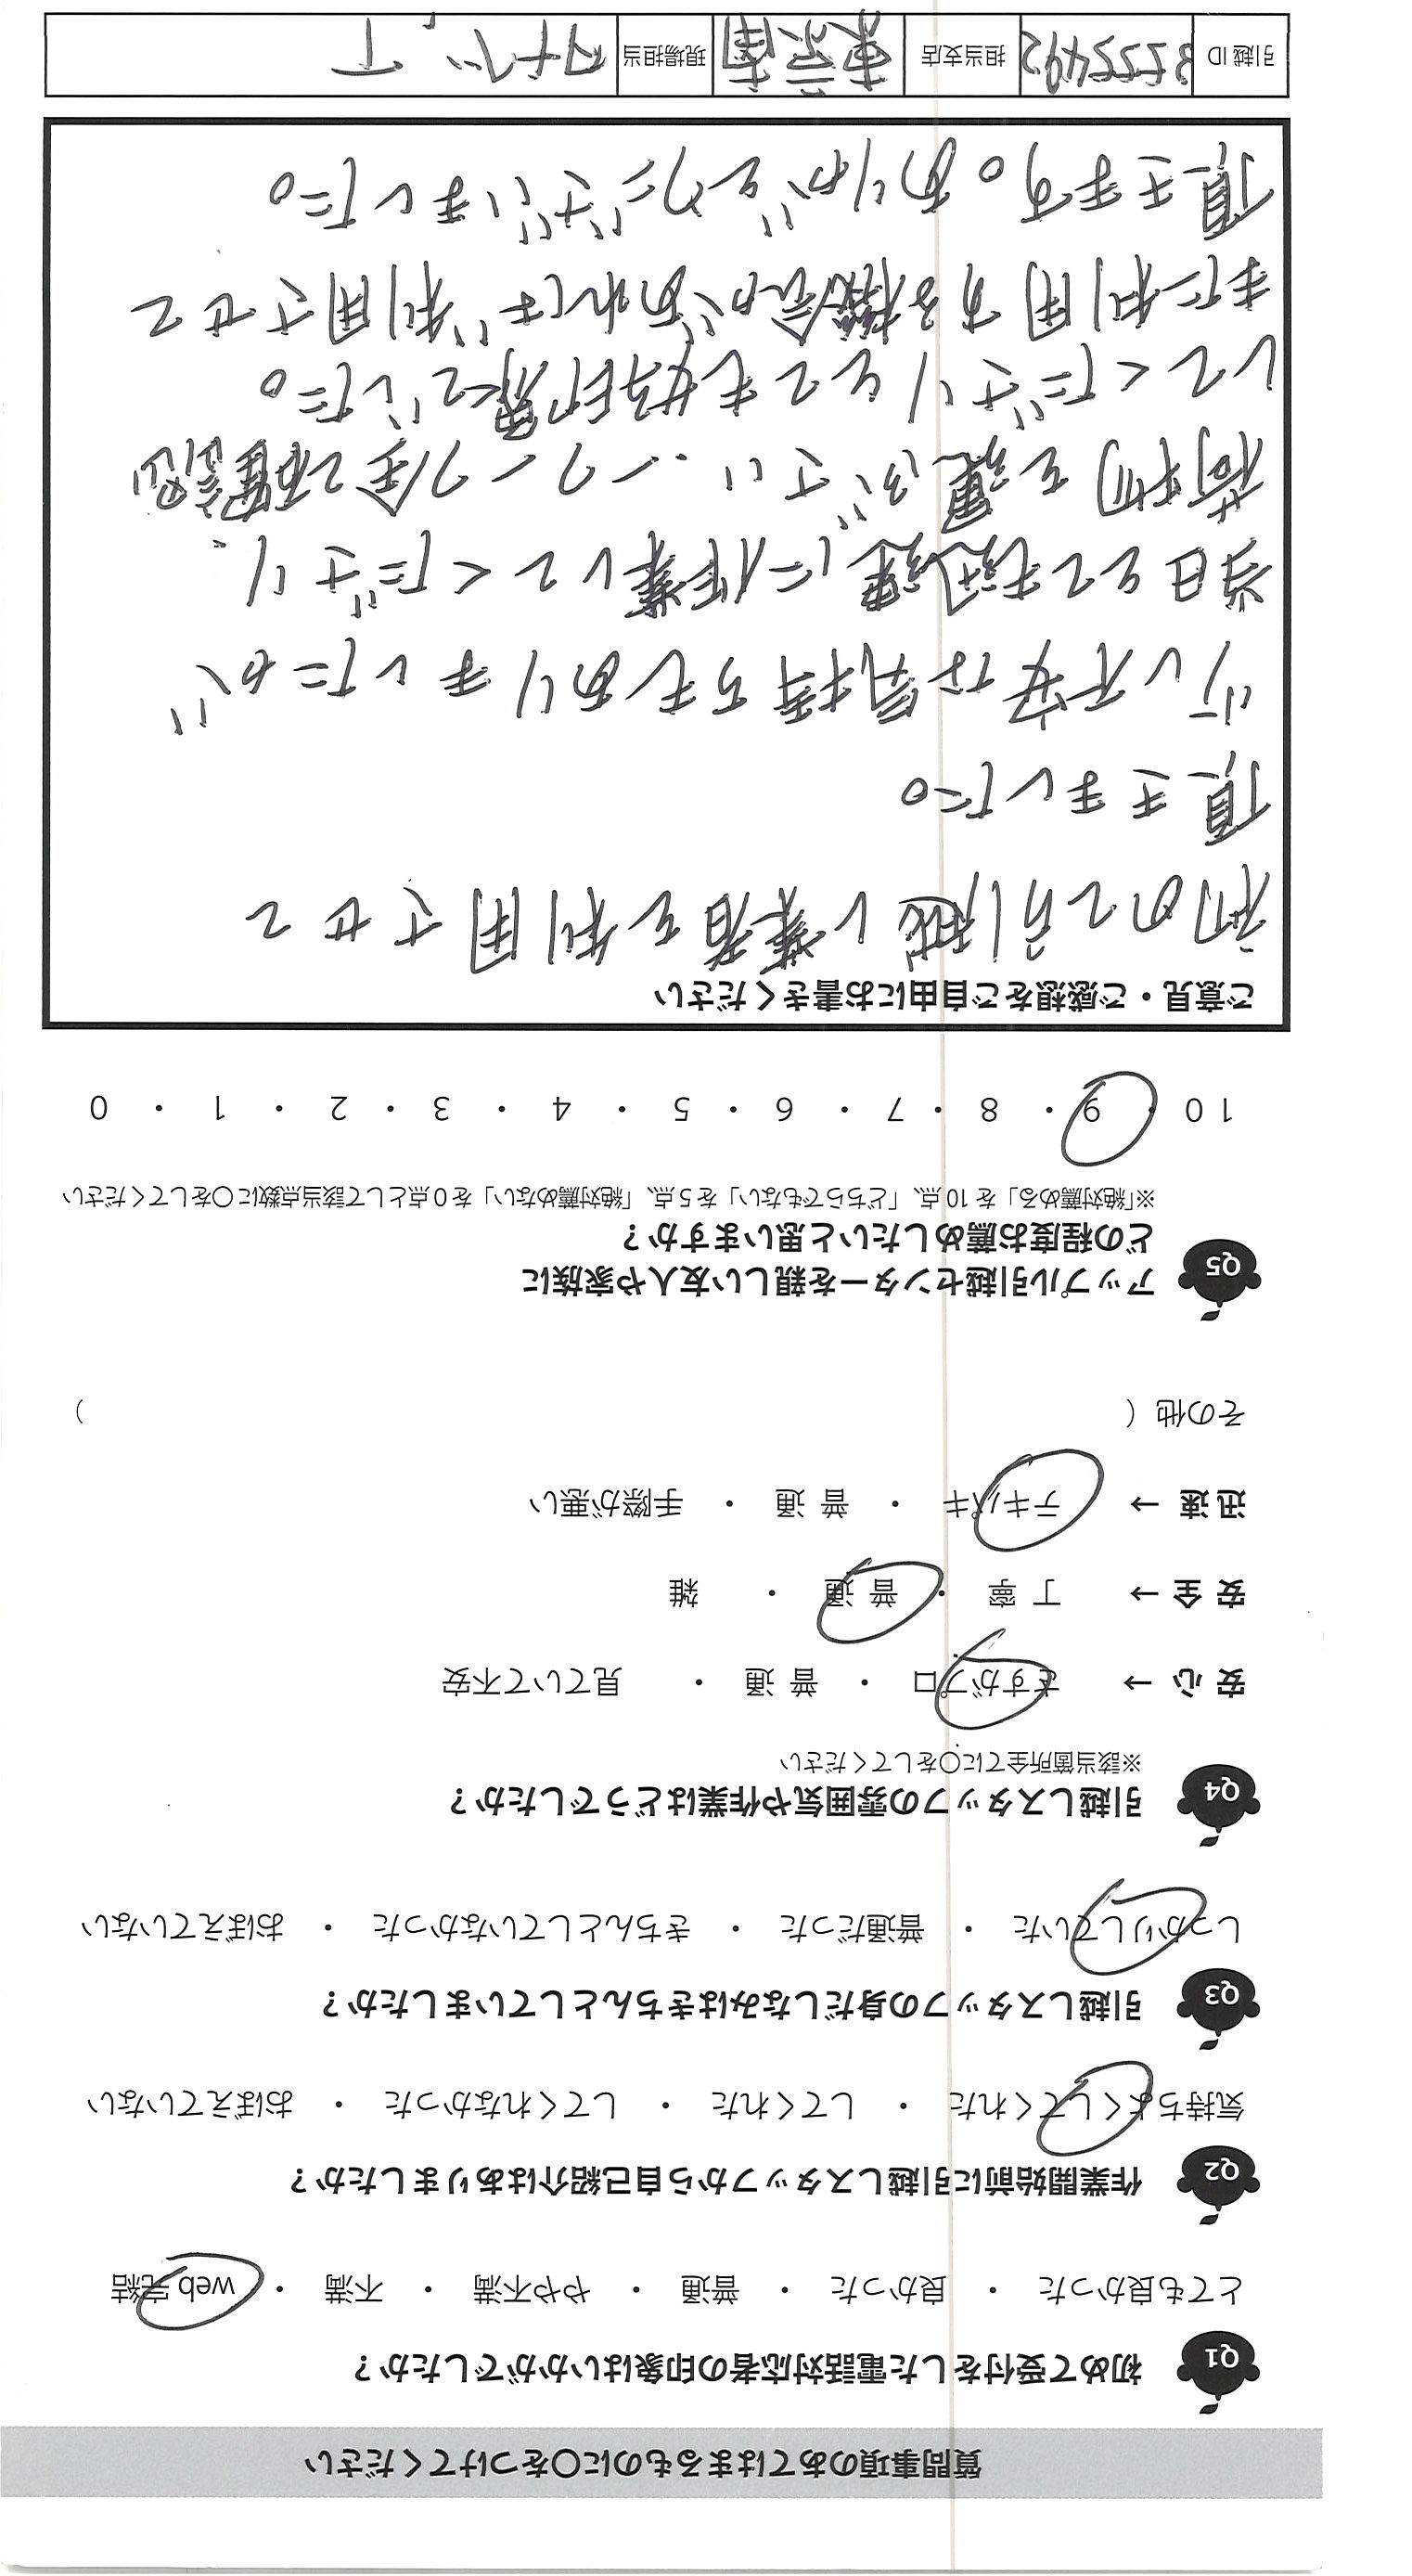 質問事項のあてはまるものに〇をつけてください
Q1 初めて受付をした電話対応者の印象はいかがでしたか？
とても良かった ・ 良かった ・ 普通 ・ やや不満 ・ 不満 ・ web 完結
Q2 作業開始前に引越しスタッフから自己紹介はありましたか？
気持ちよくしてくれた ・ してくれた ・ してくれなかった ・ おぼえていない
Q3 引越しスタッフの身だしなみはきちんとしていましたか？
しっかりしていた ・ 普通だった ・ きちんとしていなかった ・ おぼえていない
Q4 引越しスタッフの雰囲気や作業はどうでしたか？
※該当箇所全てに〇をしてください
安 心 → さすがプロ ・ 普 通 ・ 見ていて不安
安 全 → 丁 寧 ・ 普 通 ・ 雑
迅 速 → テキパキ ・ 普 通 ・ 手際が悪い
その他（ ）
Q5 アップル引越センターを親しい友人や家族に
どの程度お薦めしたいと思いますか？
※「絶対薦める」を 10 点、「どちらでもない」を 5 点、「絶対薦めない」を 0 点として該当点数に〇をしてください
10 ・ 9 ・ 8 ・ 7 ・ 6 ・ 5 ・ 4 ・ 3 ・ 2 ・ 1 ・ 0
ご意見・ご感想をご自由にお書きください
初めて引越し業者を利用させて
頂きました。
少し不安な気持ちもありましたが
当日とても迅速に作業してくださり
荷物を運ぶさい、一つ一つ全て確認
してくださりとても好印象でした。
また利用する機会があれば利用させて
頂きます。ありがとうございました。
引越 ID 担当支店 東京南 現場担当